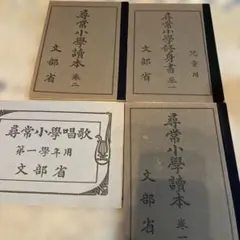 尋常小學讀本 卷二
文部省
尋常小學修身書 卷一
兒童用
文部省
尋常小學唱歌
第一學年用
文部省
尋常小學讀本 卷一
文部省